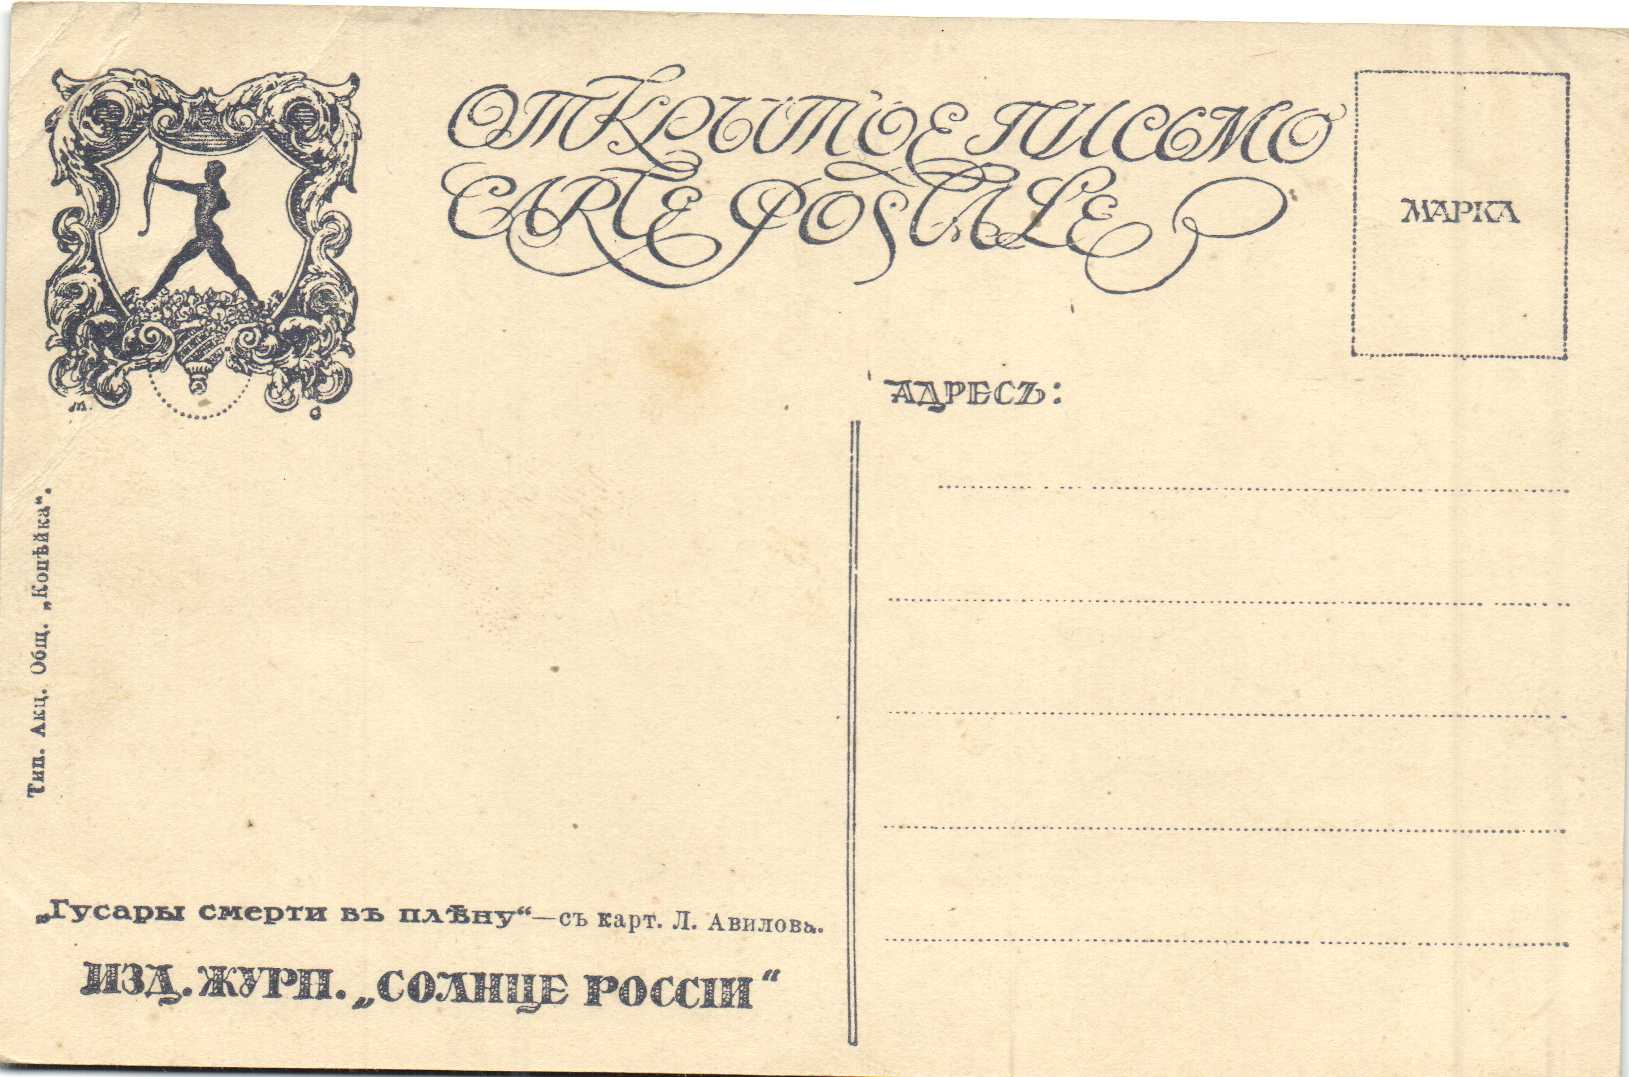 ОТКРЫТОЕ ПИСЬМО
CARTE POSTALE
МАРКА
М. С
АДРЕСЪ:
Тип. Акц. Общ. „Копѣйка“.
„Гусары смерти въ плѣну“—съ карт. Л. Авилова.
ИЗД. ЖУРН. „СОЛНЦЕ РОССІИ“